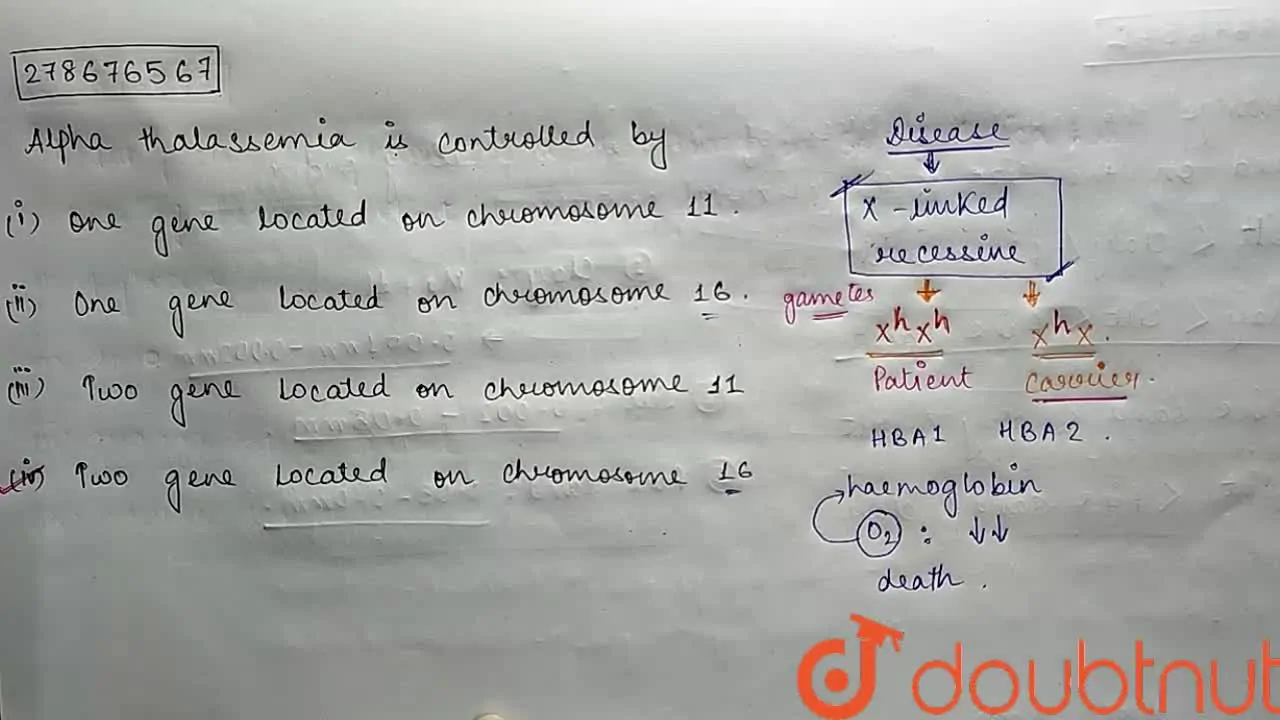 278676567
Alpha thalassemia is controlled by
(i) One gene located on chromosome 11.
(ii) One gene located on chromosome 16.
(iii) Two gene located on chromosome 11
(iv) Two gene located on chromosome 16
Disease
X-linked
recessive
gametes
xʰxʰ xʰx.
Patient Carrier.
HBA1 HBA2.
haemoglobin
O₂ : ↓↓
death.
doubtnut